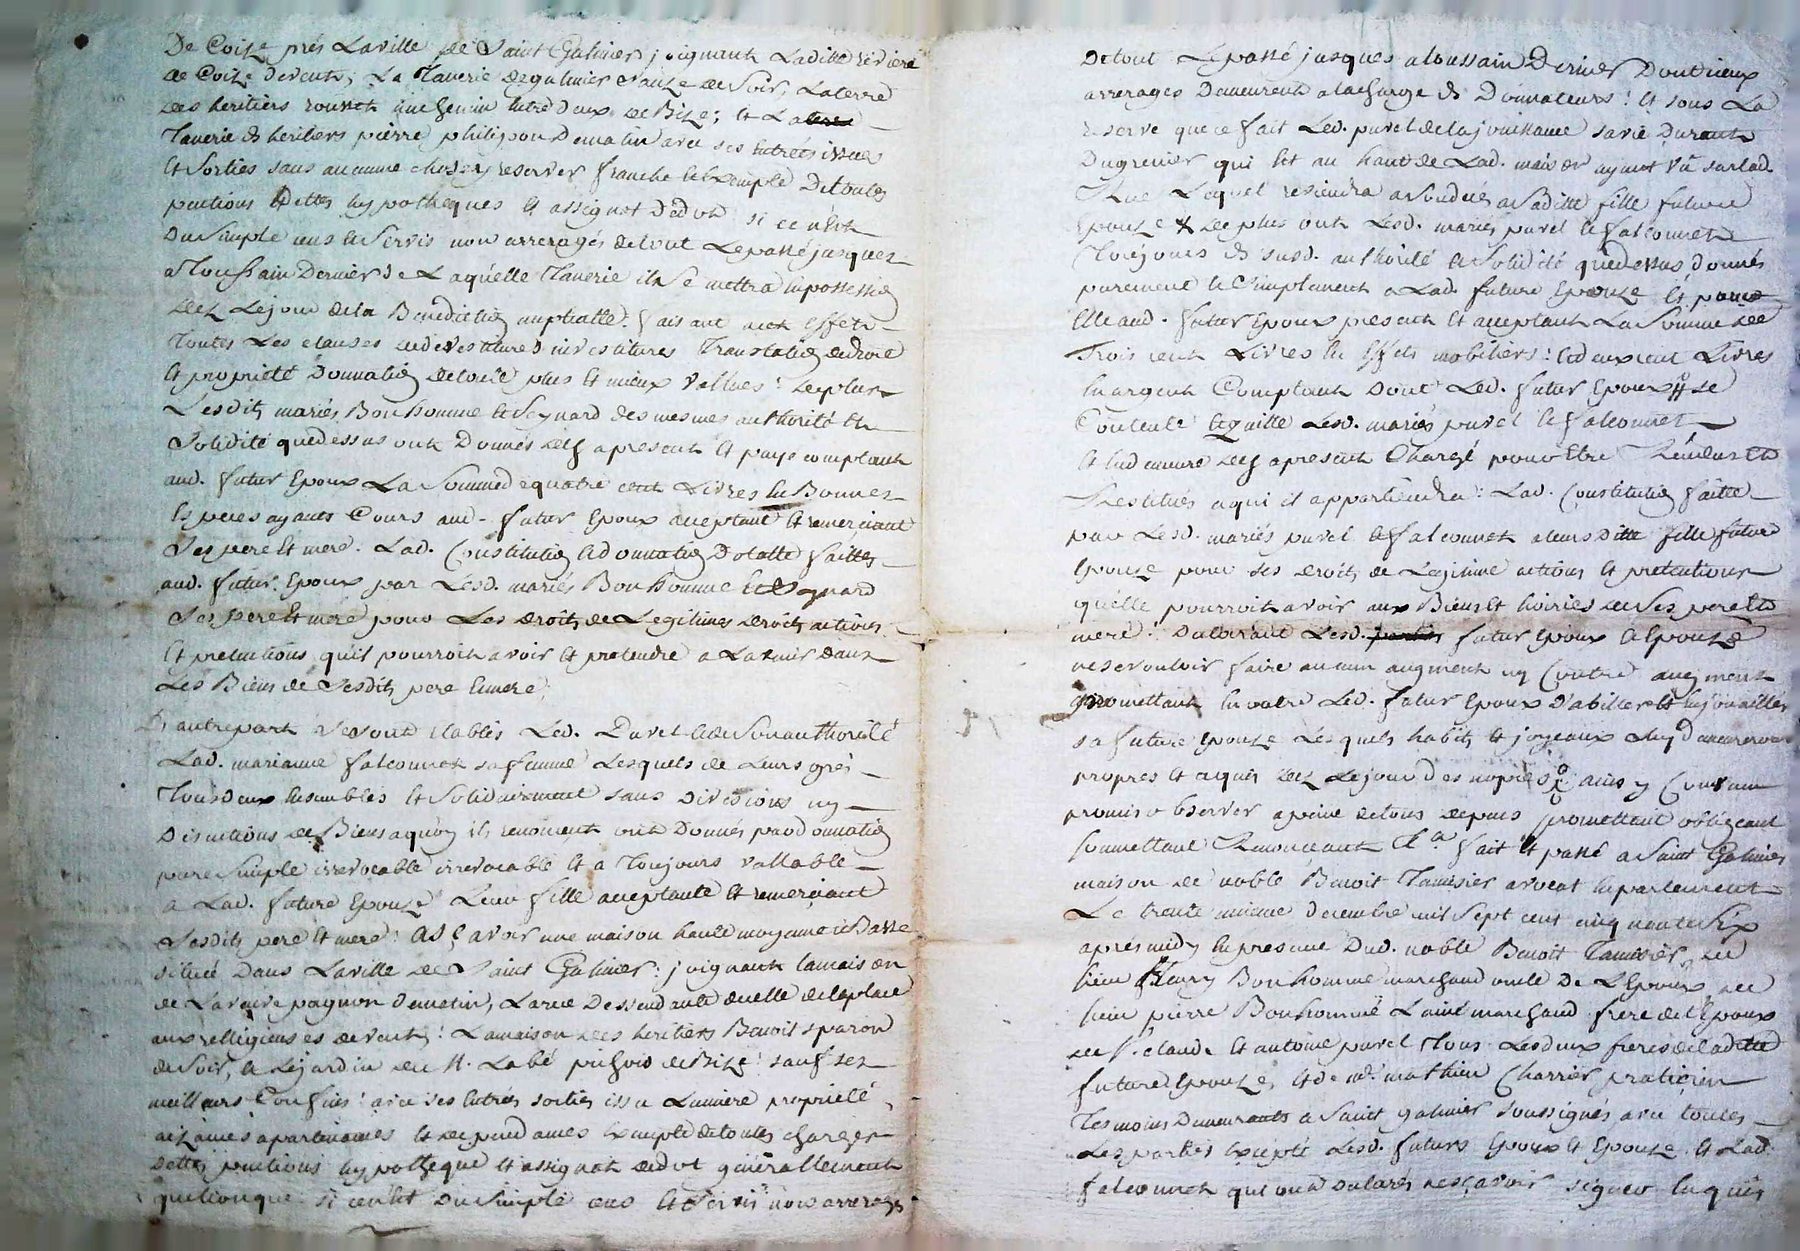 De Coize prés Laville de Saint Galmier joignant Laditte riviere
de Coize devent, La Tanerie de galmier de Soir, Laterre
des heritiers rousset un chemin entre deux de Bize; et La
Tanerie ds heritiers pierre philipon Dematin avec ses entrees issues
et Sorties sans aucunne chose y reserver franche et Exempte De toutes
pentions Dettes hypotheques et assignat Dedot si ce n'est
Du simple cens et Servis non arreragés detout Lepassé jusques
a Toussain Dernier De Laquelle Tanerie il Se mettra enpossession
dez Lejour dela Benediction nuptialle. faisant acet effet
Toutes Les clauses dedevestitures investitures Translation dedroit
et proprieté Donnation detoute plus et mieux vallues: deplus
Lesdits mariés Bonhomme et Seynard des mesmes authorité et
Solidité quedessus ont Donnés des apresent et paye comptant
aud. futur Epoux La Somme de quatre cent Livres en Bonnes
Especes ayants Cours aud. futur Epoux acceptant et remerciant
Ses pere et mere. Lad. Constitution et donnation Dotalle faittes
aud. futur Epoux par Lesd. mariés Bonhomme et Seynard
Ses pere et mere pour Les Droits de Legitimes Droits actions
et pretentions qu'il pourroit avoir et pretendre a Lavenir dans
Les Biens de Sesdits pere et mere;
D'autrepart Sesont Etablis Led. Purel et de Son authorité
Lad. marianne falconnet sa femme Lesquels de Leurs grés
Tousdeux ensembles et Solidairement sans Divisions ny
Discutions de Biens aquoy ils renoncent ont Donnés par donnation
pure simple irrevocable irrevocable et a Toujours vallable
a Lad. future Epouze Leur fille acceptante et remerciant
Sesdits pere et mere: asçavoir une maison haute moyenne et Basse
située Dans Laville de Saint Galmier: joignant lamaison
de Laveuve pagnon dematin, Larue Dessendante de celle delaplace
aux relligieuses devent: Lamaison des heritiers Benoit sparon
de Soir, et Lejardin de M. Labé de Bize: sauf ses
meilleurs Confins: avec ses entrés sorties issu Lumiere proprieté
aizances apartenances et dependances Exempte detoutes charges
Dettes pentions hypotheque et assignat dedot generallement
quelconque. si cen'est Du Simple cens et Servis non arreragés
Detout Lepassé jusques a toussain Dernier Dont iceux
arrerages Demeurent a la charge ds Donnateurs: et sous La
reserve que ce fait Led. purel de la jouissance sa vie Durant
Dugrenier qui Est au haut de Lad. maison ayant vû sur lad.
Rue Lequel reviendra a Saditte fille future
Epouze & de plus ont Lesd. mariés purel et falconnet
Toujours ds susd. authorité et Solidité quedessus donnés
purement et Simplement a Lad. future Epouze et pour
Elle aud. futur Epoux present et acceptant La Somme de
Trois cent Livres en Effets mobiliers: et deux cent Livres
en argent Comptant Dont Led. futur Epoux se
Contente et quitte Lesd. mariés purel et falconnet
et en demeure des apresent Chargé pour Etre Rendus et
Restitués a qui il appartiendra: Lad. Constitution faitte
par Lesd. mariés purel et falconnet a leurditte fille future
Epouze pour ses Droits de Legitime actions et pretentions
qu'elle pourroit avoir aux Biens et hoiries de Ses pere et
mere: Declarant Lesd. futur Epoux et Epouze
ne se vouloir faire aucun augment ny Contre augment
promettant en outre Led. futur Epoux D'abiller et enjouailler
sa future Epouze Lesquels habits et joyeaux Luy demeureront
propres et aquis dez Lejour des nopces ainsy Convenu
promis observer apeine detous depens promettant obligeant
soumettant Renonceant &a. fait et passé a Saint Galmier
maison de noble Benoit Tamisier avocat en parlement
Le trente unieme Decembre mil Sept cent cinquante Six
aprés midy en presence Dud. noble Benoit Tamisier, de
Sieur fleury Bonhomme marchand oncle De L'Epoux de
Sieur pierre Bonhomme L'ainé marchand frere de l'Epoux
de S. claude et antoine purel Tous Lesdeux freres de laditte
future Epouze, et de me. mathieu Charrier praticien
Temoins Demeurants a Saint galmier soussignés avec toutes
Les parties Excepté Lesd. futurs Epoux et Epouze et Lad.
falconnet qui ont Declarés ne sçavoir signer enquis